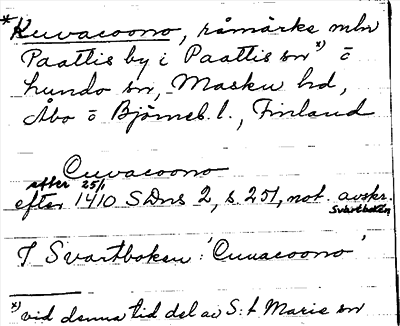 *Kuvacoono, råmärke mln
Paattis by i Paattis sn *) o
Lundo sn, Masku hd,
Åbo o Björneb. l., Finland
Cuvacoono
efter 25/1
efter 1410 SDns 2, s. 251, not. avskr.
Svartboken
I Svartboken: 'Cuuacoono'
*) vid denna tid del av S:t Marie sn